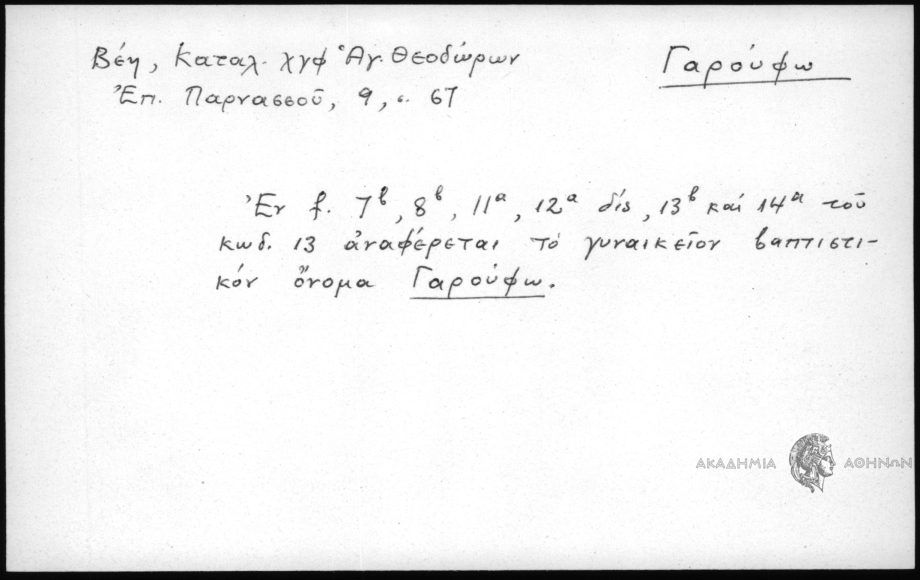 Βέη, Καταλ. χγφ Ἁγ. Θεοδώρων
Γαρούφω
Ἐπ. Παρνασσοῦ, 9, σ. 67
Ἐν f. 7β, 8β, 11α, 12α δίς, 13β καί 14α τοῦ
κωδ. 13 ἀναφέρεται τό γυναικεῖον βαπτιστι-
κόν ὄνομα Γαρούφω.
ΑΚΑΔΗΜΙΑ ΑΘΗΝΩΝ